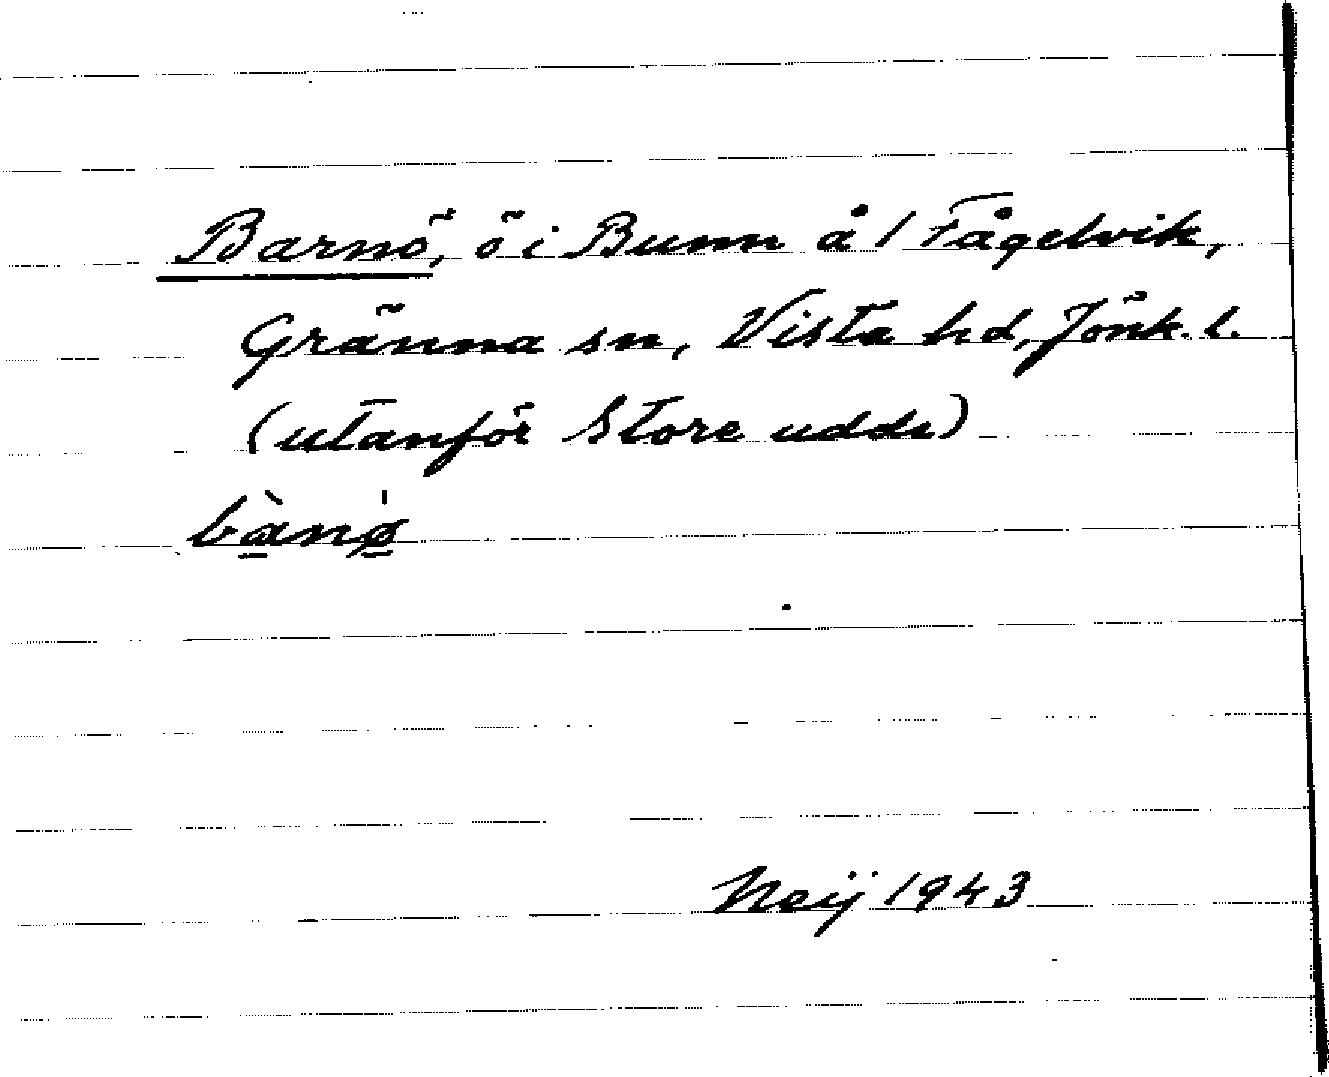 Barnö, ö i Bunn å 1 Fågelvik,
Gränna sn, Vista hd, Jönk. l.
(utanför Store udde)
bànø̀
Neij 1943